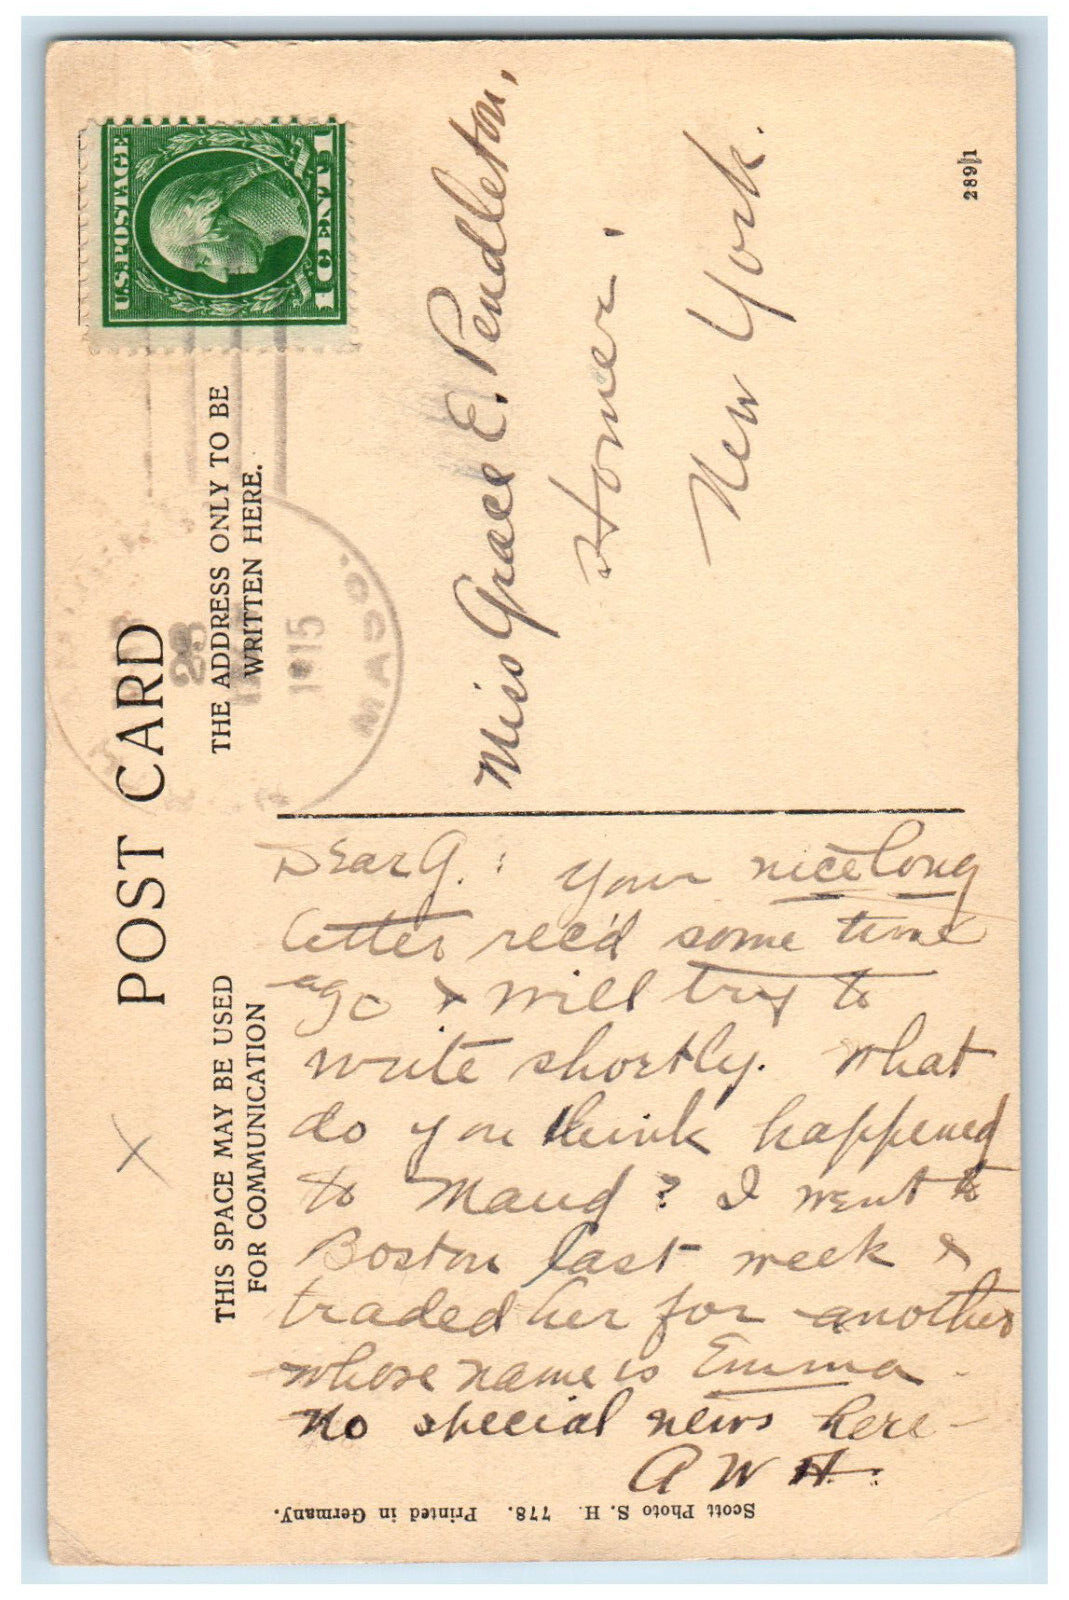 POST CARD
THIS SPACE MAY BE USED
FOR COMMUNICATION
THE ADDRESS ONLY TO BE
WRITTEN HERE.
U.S. POSTAGE
1 CENT 1
23
1915
MADISON CO.
Miss Grace E. Pendleton,
Homer,
New York.
289/1
Dear G.: Your nice long
letter rec'd some time
ago & will try to
write shortly. What
do you think happened
to Maud? I went to
Boston last week &
traded her for another
whose name is Emma.
No special news here –
A W H.
Scott Photo S. H. 778. Printed in Germany.